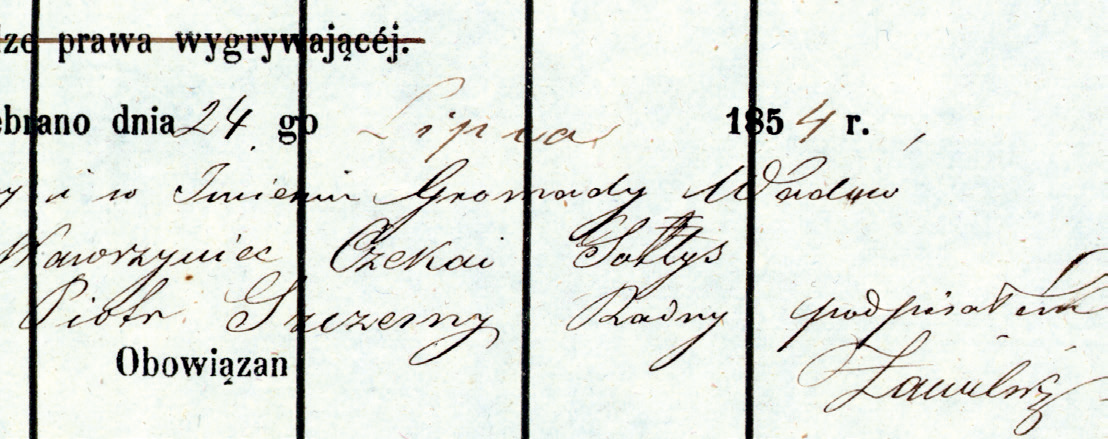 dze prawa wygrywającéj.
ebrano dnia 24 go Lipca 1854 r.
y i w Imieniu Gromady Wadów
Wawrzyniec Czekai Sołtys
Piotr Szczerny Radny podpisałem
Obowiązan